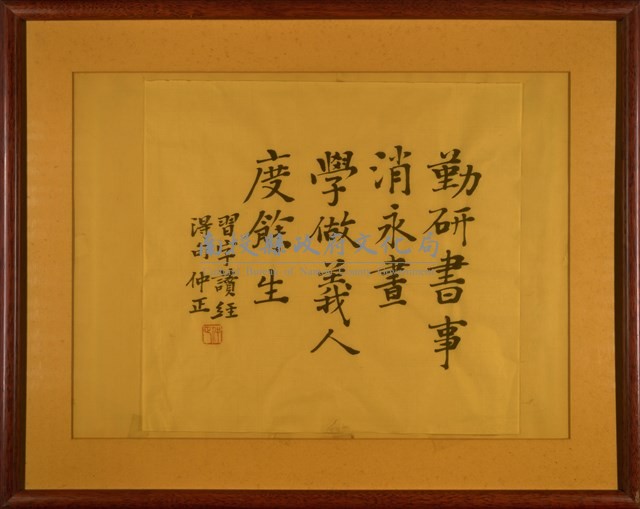 勤研書事
消永晝
學做義人
度餘生
習字讀經
仲正
南投縣政府文化局